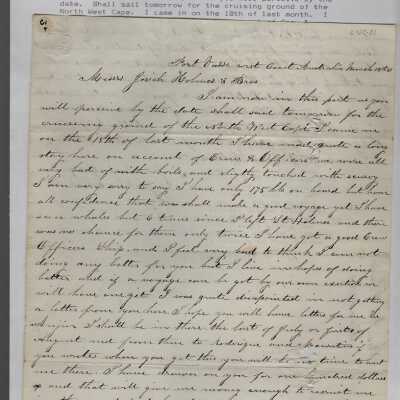 date. Shall sail tomorrow for the cruising ground of the
North West Cape. I came in on the 18th of last month. I
Port
Messrs Josiah Holmes & Bros
I am now in this port as you
will perceive by the date shall sail tomorrow for the
cruising ground of the North West Cape I came in
on the 18th of last month I have made quite a long
stay here on account of Crew & Officers we were all
very bad off with boils and slightly touched with scurvy
I am very sorry to say I have only 175 bbls on board but have
all confidence that we shall make a good voyage yet I have
seen whales but 6 times since I left St Helena and there
was no chance for them only twice I have got a good Crew
Officers & Ship and I feel very bad to think I am not
doing any better for you but I live in hopes of doing
better and if a voyage can be got by our own exertion we
will have one yet I was quite disapointed in not getting
a letter from you here I hope you will have letters for me in
I shall be in there the last of July or first of
August and from there to and
you write when you get this you will
me there I have drawn on you for one hundred dollars
& and that will give me money enough to recruit me